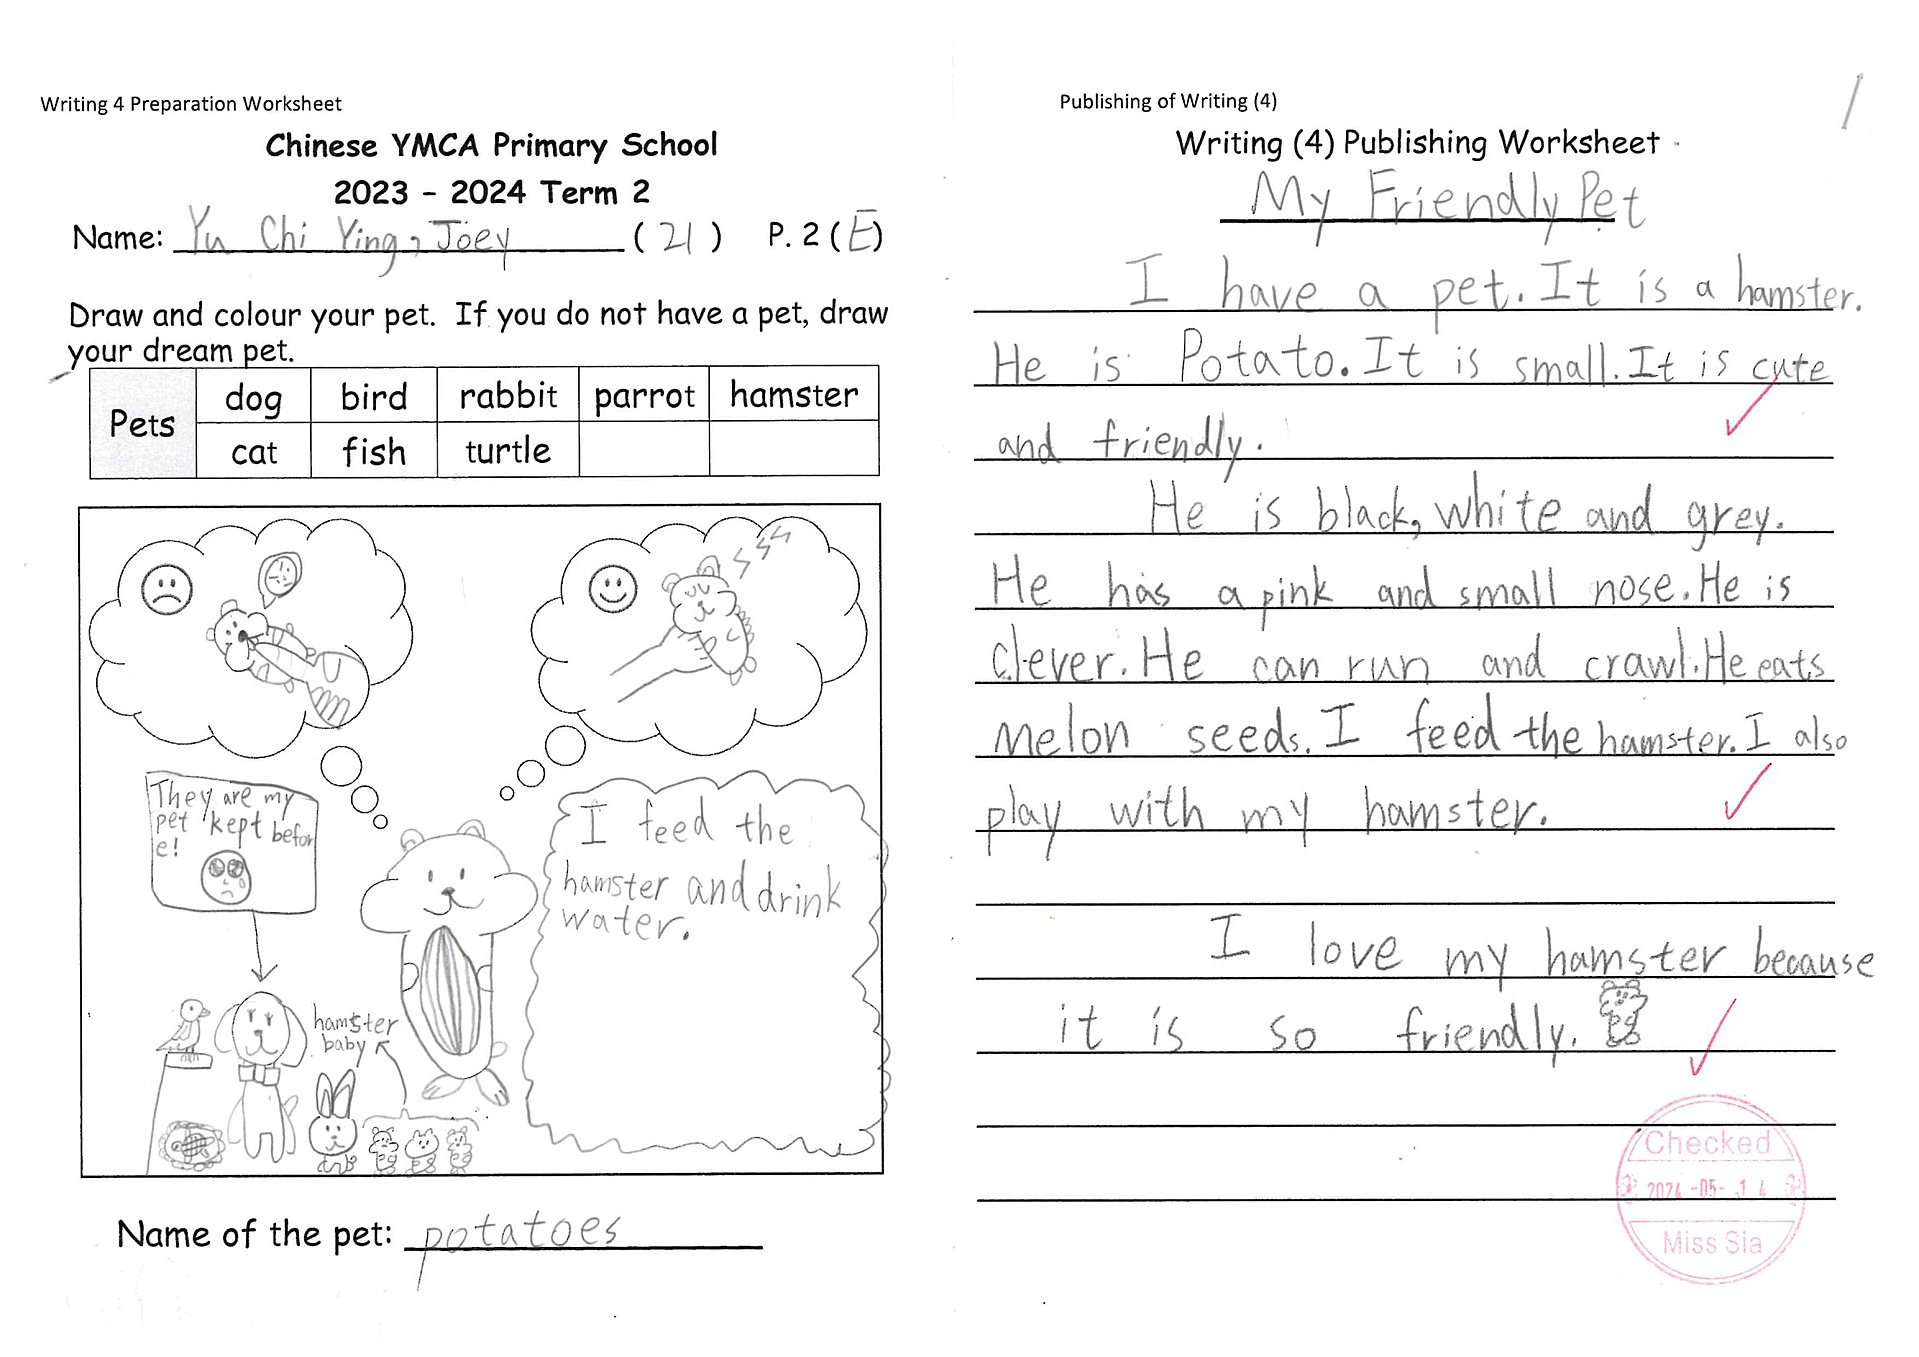 Writing 4 Preparation Worksheet
Chinese YMCA Primary School
2023 - 2024 Term 2
Name: Yu Chi Ying, Joey (21) P. 2 (E)
Draw and colour your pet. If you do not have a pet, draw
your dream pet.
Pets dog bird rabbit parrot hamster
cat fish turtle
They are my
pet kept befor
e!
I feed the
hamster and drink
water.
hamster
baby
Name of the pet: potatoes
Publishing of Writing (4)
Writing (4) Publishing Worksheet
My Friendly Pet
I have a pet. It is a hamster.
He is Potato. It is small. It is cute
and friendly.
He is black, white and grey.
He has a pink and small nose. He is
clever. He can run and crawl. He eats
melon seeds. I feed the hamster. I also
play with my hamster.
I love my hamster because
it is so friendly.
Checked
2024 -05- 14
Miss Sia